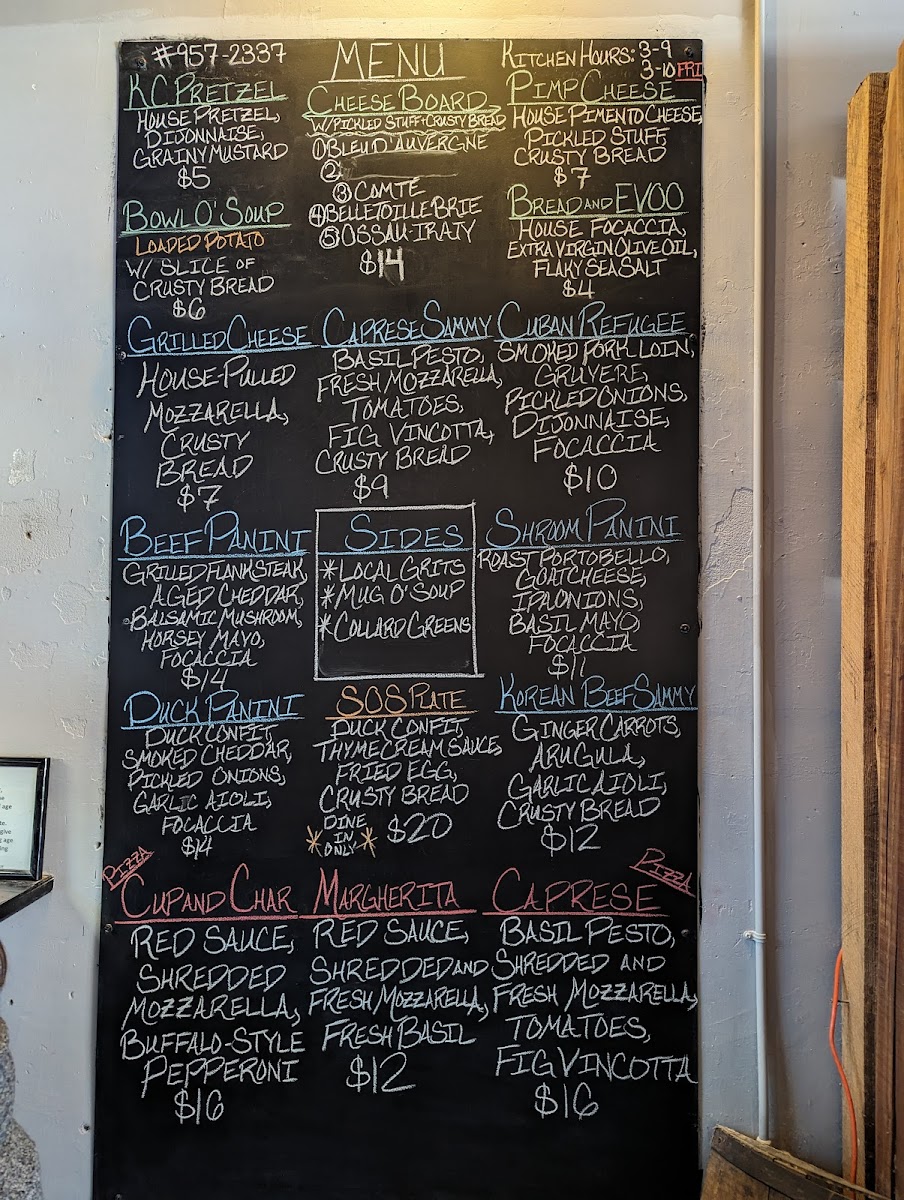 #957-2337
MENU
KITCHEN HOURS: 3-9
3-10 FRI
KC PRETZEL
HOUSE PRETZEL,
DIJONNAISE,
GRAINY MUSTARD
$5
CHEESE BOARD
W/ PICKLED STUFF + CRUSTY BREAD
① BLEU D'AUVERGNE
②
③ COMTE
④ BELLETOILLE BRIE
⑤ OSSAU-IRATY
$14
PIMP CHEESE
HOUSE PIMENTO CHEESE,
PICKLED STUFF,
CRUSTY BREAD
$7
BOWL O' SOUP
LOADED POTATO
W/ SLICE OF
CRUSTY BREAD
$6
BREAD AND EVOO
HOUSE FOCACCIA,
EXTRA VIRGIN OLIVE OIL,
FLAKY SEA SALT
$4
GRILLED CHEESE
HOUSE-PULLED
MOZZARELLA,
CRUSTY
BREAD
$7
CAPRESE SAMMY
BASIL PESTO,
FRESH MOZZARELLA,
TOMATOES,
FIG VINCOTTA,
CRUSTY BREAD
$9
CUBAN REFUGEE
SMOKED PORK LOIN,
GRUYERE,
PICKLED ONIONS,
DIJONNAISE,
FOCACCIA
$10
BEEF PANINI
GRILLED FLANK STEAK,
AGED CHEDDAR,
BALSAMIC MUSHROOM,
HORSEY MAYO,
FOCACCIA
$14
SIDES
* LOCAL GRITS
* MUG O' SOUP
* COLLARD GREENS
SHROOM PANINI
ROAST PORTOBELLO,
GOAT CHEESE,
IPA ONIONS,
BASIL MAYO,
FOCACCIA
$11
DUCK PANINI
DUCK CONFIT,
SMOKED CHEDDAR,
PICKLED ONIONS,
GARLIC AIOLI,
FOCACCIA
$14
SOS PLATE
DUCK CONFIT,
THYME CREAM SAUCE,
FRIED EGG,
CRUSTY BREAD
* DINE IN ONLY * $20
KOREAN BEEF SAMMY
GINGER CARROTS,
ARUGULA,
GARLIC AIOLI,
CRUSTY BREAD
$12
PIZZA
CUP AND CHAR
RED SAUCE,
SHREDDED
MOZZARELLA,
BUFFALO-STYLE
PEPPERONI
$16
MARGHERITA
RED SAUCE,
SHREDDED AND
FRESH MOZZARELLA,
FRESH BASIL
$12
PIZZA
CAPRESE
BASIL PESTO,
SHREDDED AND
FRESH MOZZARELLA,
TOMATOES,
FIG VINCOTTA
$16
age
give
age